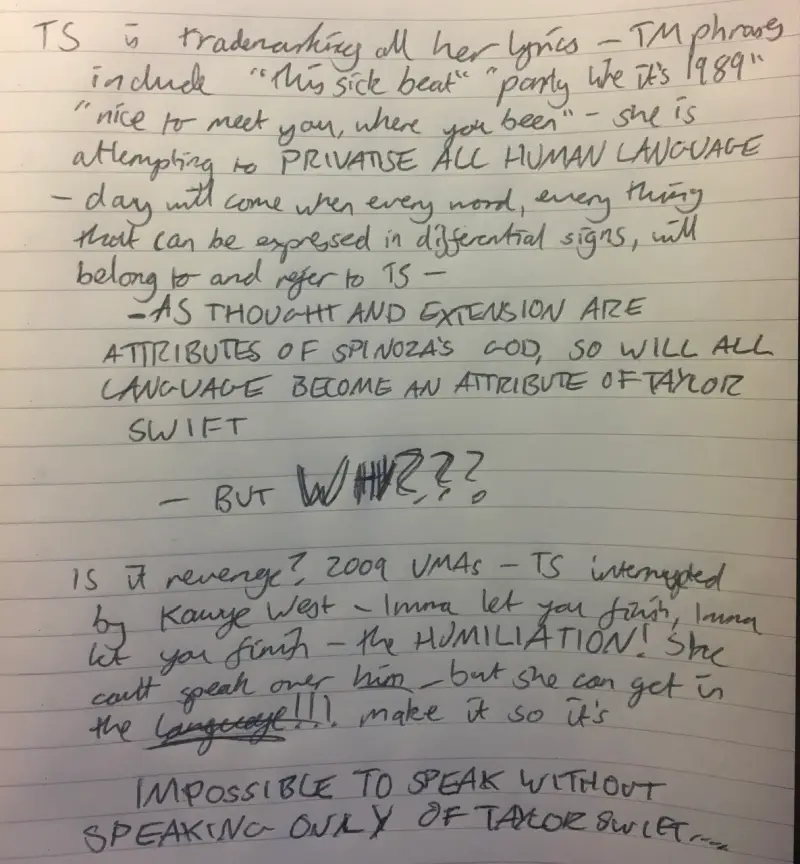 TS is trademarking all her lyrics – TM phrases
include "this sick beat" "party like it's 1989"
"nice to meet you, where you been" – she is
attempting to PRIVATISE ALL HUMAN LANGUAGE
– day will come when every word, every thing
that can be expressed in differential signs, will
belong to and refer to TS –
– AS THOUGHT AND EXTENSION ARE
ATTRIBUTES OF SPINOZA'S GOD, SO WILL ALL
LANGUAGE BECOME AN ATTRIBUTE OF TAYLOR
SWIFT
– BUT WHY???
Is it revenge? 2009 VMAs – TS interrupted
by Kanye West – Imma let you finish, Imma
let you finish – the HUMILIATION! She
can't speak over him – but she can get in
the language!!! make it so it's
IMPOSSIBLE TO SPEAK WITHOUT
SPEAKING ONLY OF TAYLOR SWIFT....